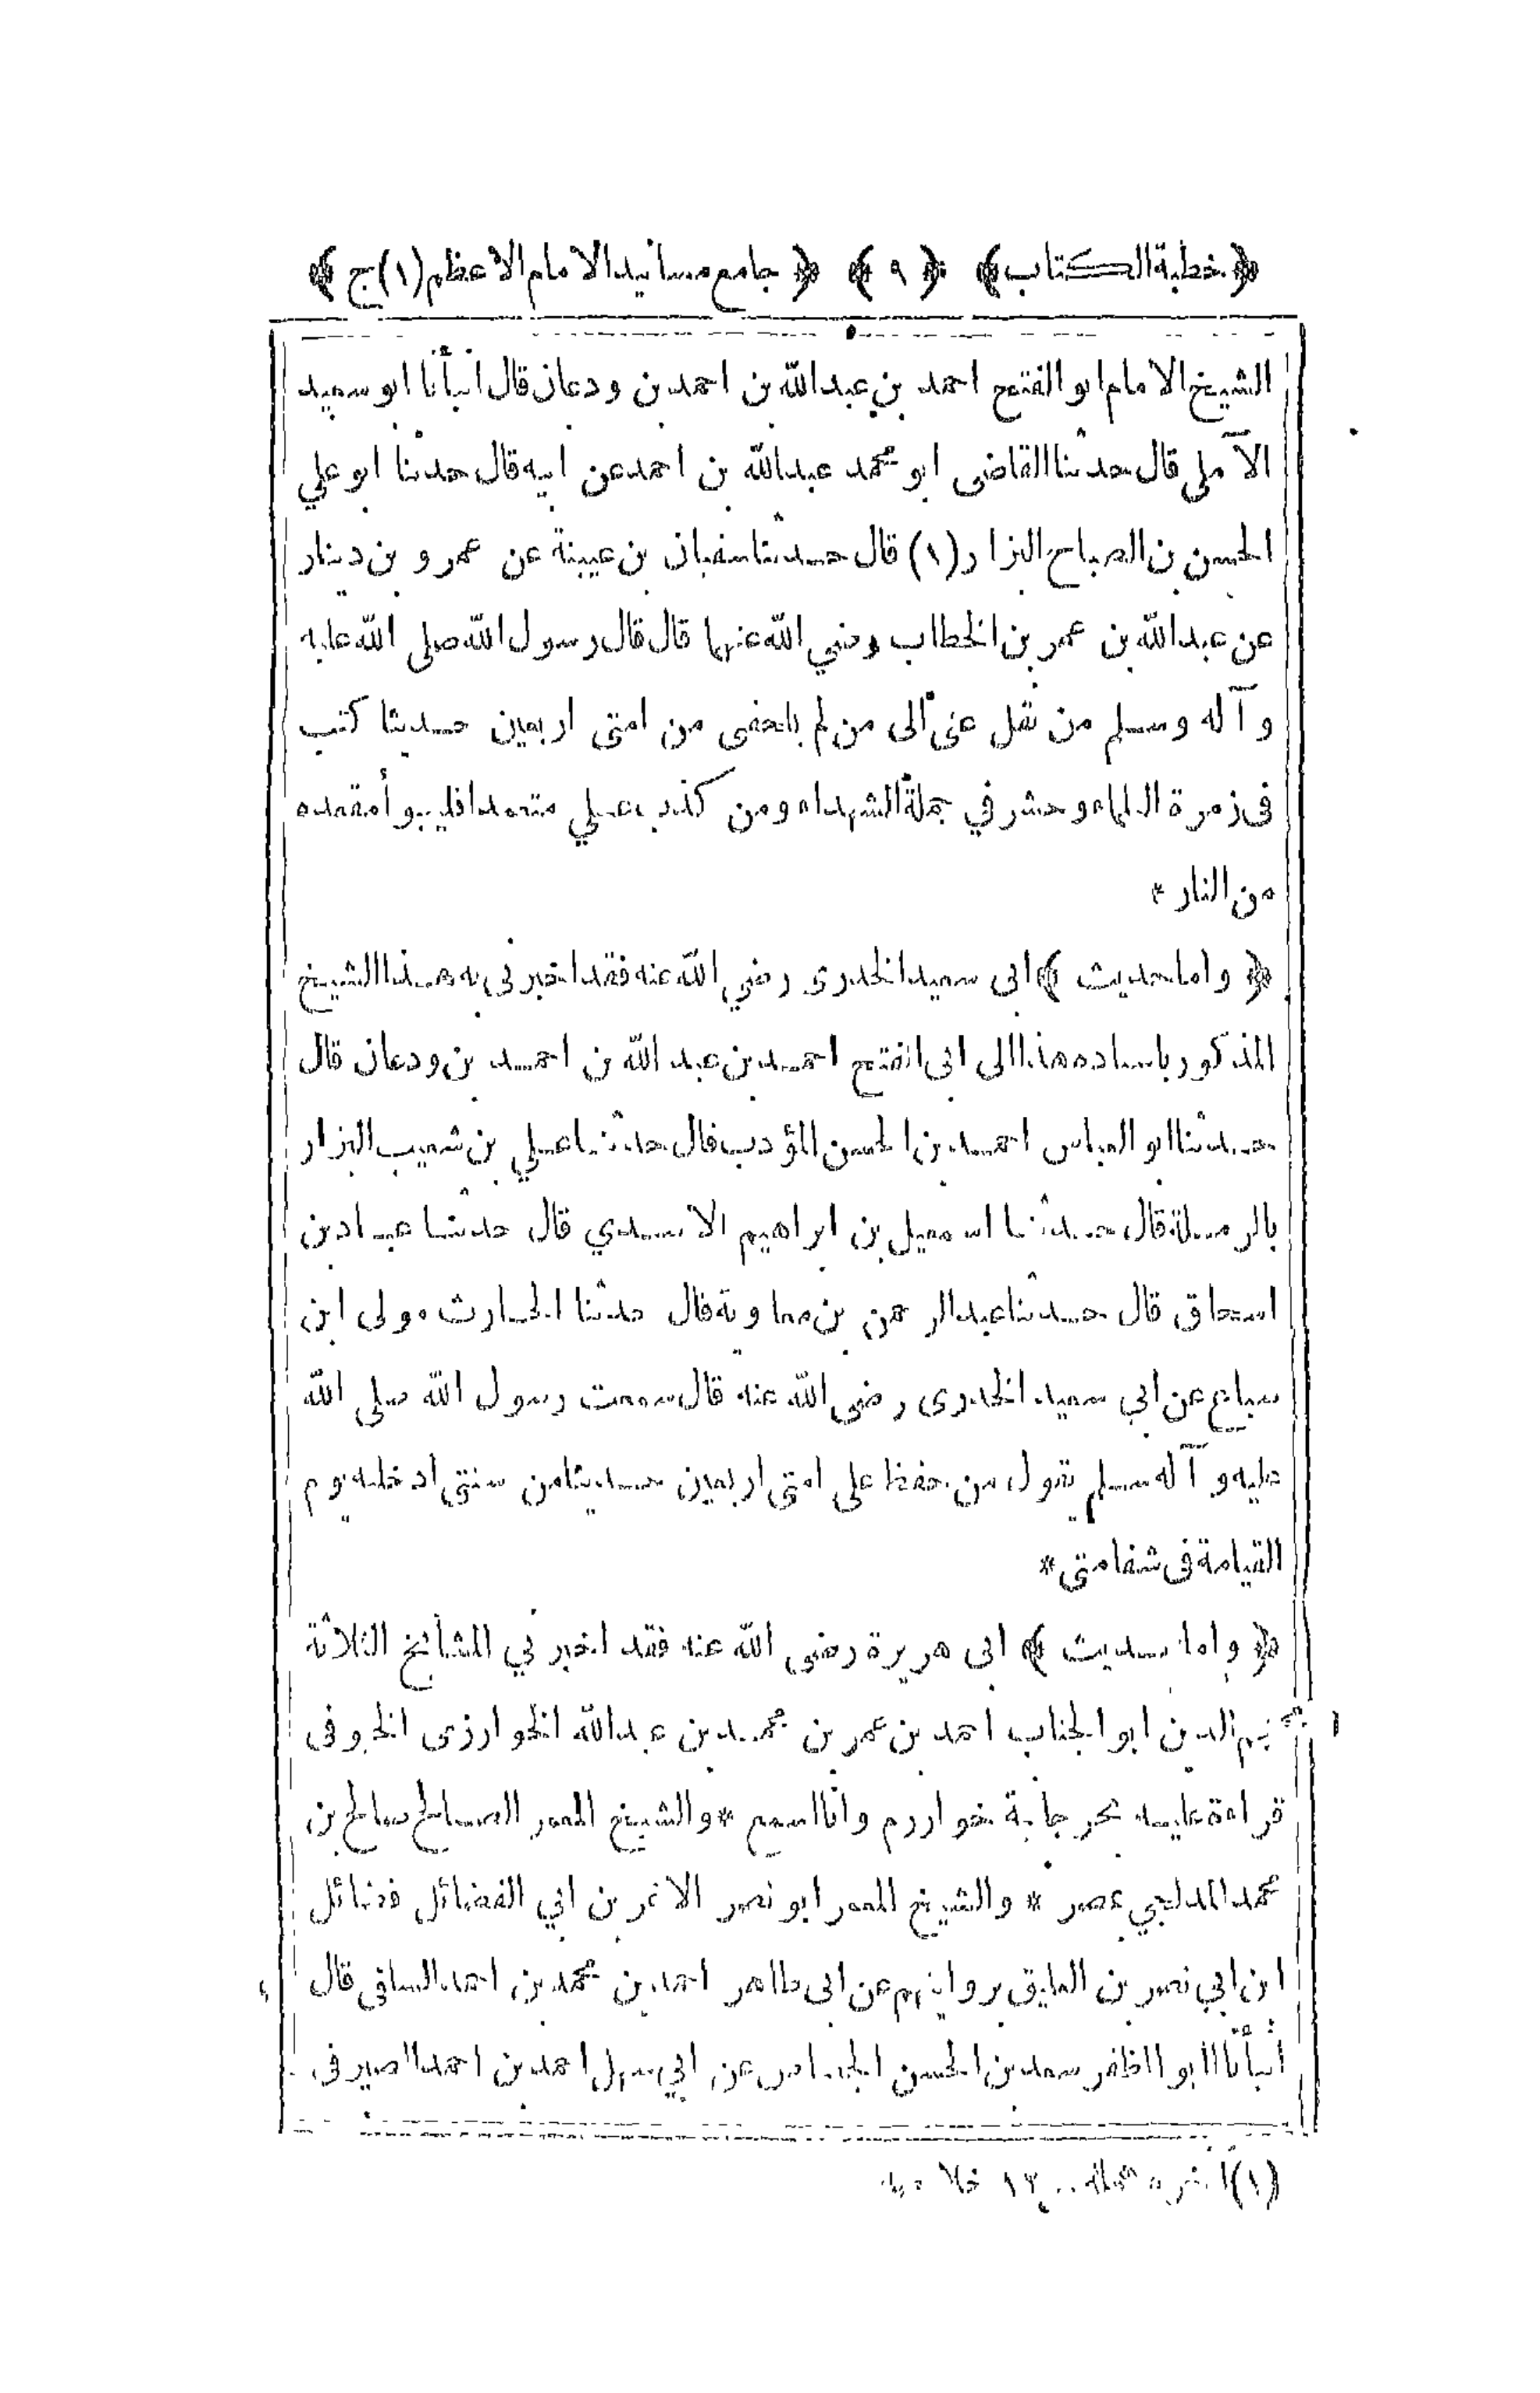 ﴿ خطبة الكتاب ﴾ ﴿ ٩ ﴾ ﴿ جامع مسانيد الامام الاعظم (١) ج ﴾
الشيخ الامام ابو الفتح احمد بن عبدالله بن احمد بن ودعان قال انبأنا ابو سعيد
الآملى قال حدثنا القاضى ابو محمد عبدالله بن احمد عن ابيه قال حدثنا ابو علي
الحسن بن الصباح البزار (١) قال حدثنا سفيان بن عيينة عن عمرو بن دينار
عن عبدالله بن عمر بن الخطاب رضي الله عنهما قال قال رسول الله صلى الله عليه
وآله وسلم من نقل عنى الى من لم يلحقنى من امتى اربعين حديثا كتب
فى زمرة العلماء وحشر في جملة الشهداء ومن كذب علي متعمدا فليتبوأ مقعده
من النار *
﴿ واما حديث ﴾ ابى سعيد الخدرى رضي الله عنه فقد اخبرنى به هذا الشيخ
المذكور باسناده هذا الى ابى الفتح احمد بن عبد الله بن احمد بن ودعان قال
حدثنا ابو العباس احمد بن الحسن المؤدب قال حدثنا علي بن شعيب البزار
بالرملة قال حدثنا اسمعيل بن ابراهيم الاسدي قال حدثنا عباد بن
اسحاق قال حدثنا عبدالرحمن بن معاوية قال حدثنا الحارث مولى ابن
سباع عن ابي سعيد الخدرى رضى الله عنه قال سمعت رسول الله صلى الله
عليه وآله سلم يقول من حفظ على امتى اربعين حديثا من سنتى ادخلته يوم
القيامة فى شفاعتى *
﴿ واما حديث ﴾ ابى هريرة رضى الله عنه فقد اخبرني المشائخ الثلاثة
نجم الدين ابو الجناب احمد بن عمر بن محمد بن عبدالله الخوارزمى الخيوفى
قراءة عليه بجرجانية خوارزم وانا اسمع * والشيخ المعمر الصالح صالح بن
محمد المدلجي بمصر * والشيخ المعمر ابو نصر الاغر بن ابي الفضائل فضائل
ابن ابي نصر بن العليق بروايتهم عن ابى طاهر احمد بن محمد بن احمد السلفى قال
أنبأنا ابو المظفر سعد بن الحسن عن ابي سهل احمد بن احمد الصيرفى
(١) خلاصه